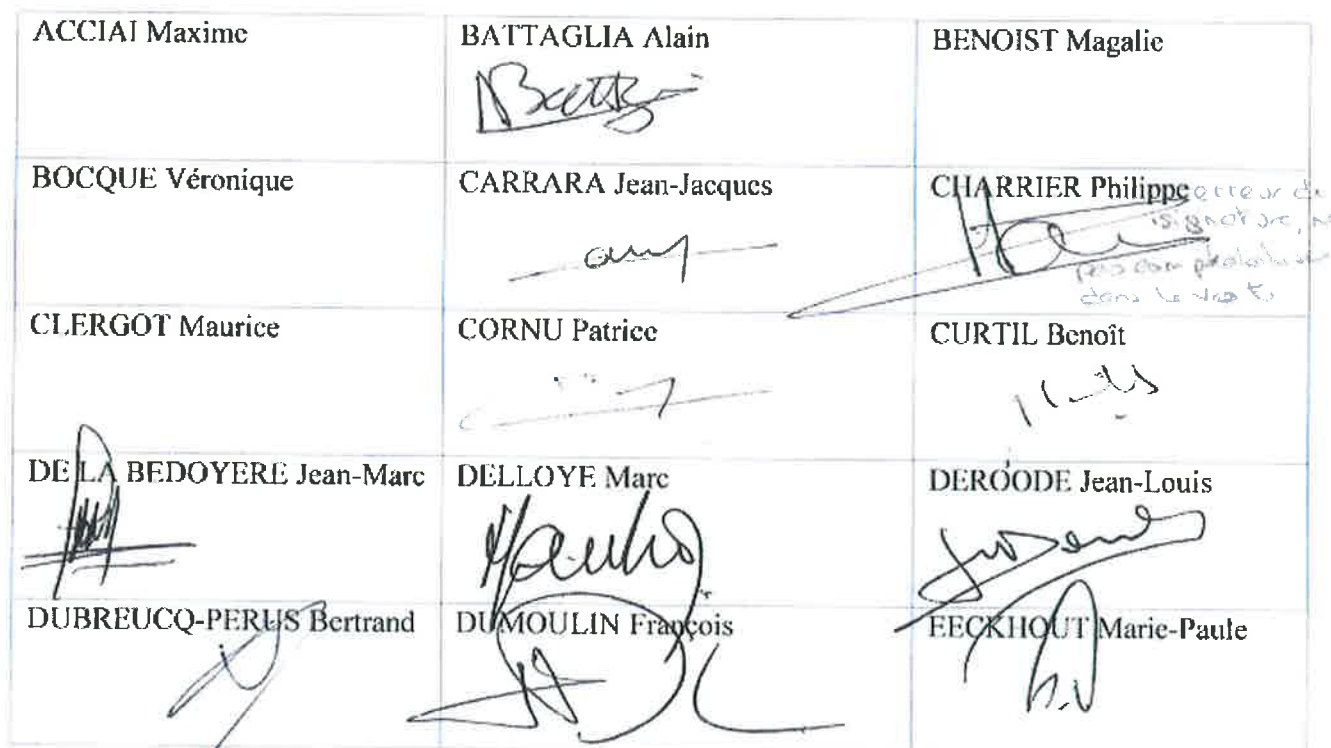 ACCIAI Maxime
BATTAGLIA Alain
BENOIST Magalie
BOCQUE Véronique
CARRARA Jean-Jacques
CHARRIER Philippe
erreur de
signature,
dans le
CLERGOT Maurice
CORNU Patrice
CURTIL Benoît
DE LA BEDOYERE Jean-Marc
DELLOYE Marc
DEROODE Jean-Louis
DUBREUCQ-PERUS Bertrand
DUMOULIN François
EECKHOUT Marie-Paule